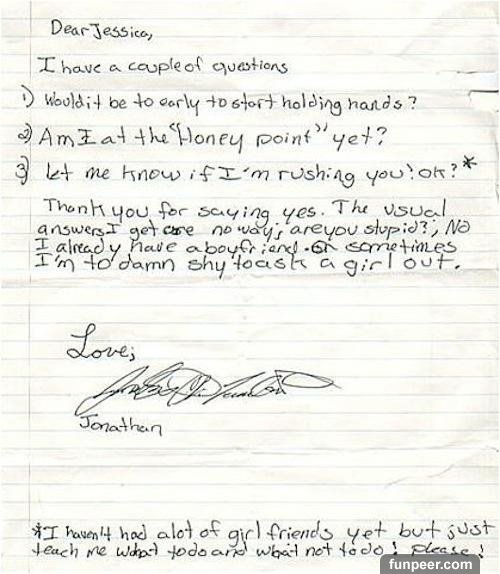 Dear Jessica,
I have a couple of questions
1) Would it be to early to start holding hands?
2) Am I at the "Honey point" yet?
3) Let me know if I'm rushing you! ok?*
Thank you for saying yes. The usual
answers I get are no way; are you stupid?; No
I already have a boyfriend. Or sometimes
I'm to damn shy to ask a girl out.
Love;
Jonathan
*I haven't had alot of girl friends yet but just
teach me what to do and what not to do! please!
funpeer.com